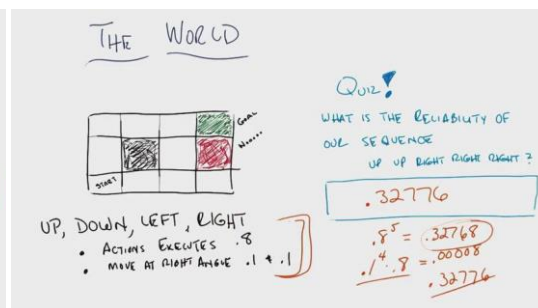 THE WORLD
GOAL
NO.....
START
UP, DOWN, LEFT, RIGHT
• ACTIONS EXECUTES .8
• MOVE AT RIGHT ANGLE .1 & .1
QUIZ!
WHAT IS THE RELIABILITY OF
OUR SEQUENCE
UP UP RIGHT RIGHT RIGHT?
.32776
.8⁵ = .32768
.1⁴ . .8 = .00008
.32776